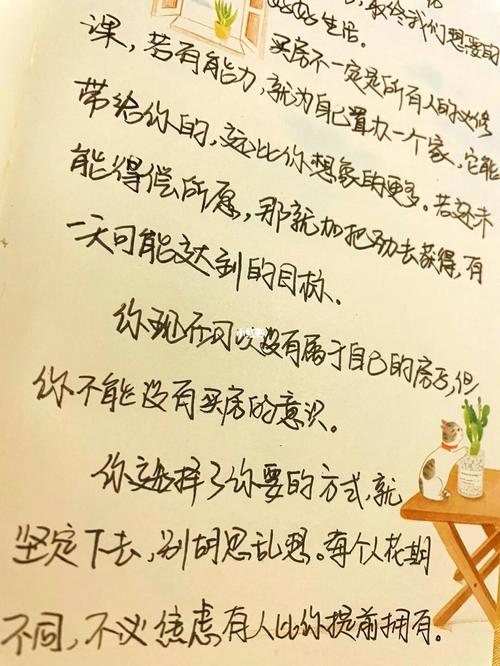 最终我们想要的
生活。
买房不一定是所有人的必修
课，若有能力，就为自己置办一个家，它能
带给你的，远比你想象的更多。若还未
能得偿所愿，那就加把劲去获得，有
一天可能达到的目标。
你现在可以没有属于自己的房子，但
你不能没有买房的意识。
你选择了你要的方式，就
坚定下去，别胡思乱想。每个人花期
不同，不必焦虑有人比你提前拥有。
小红书